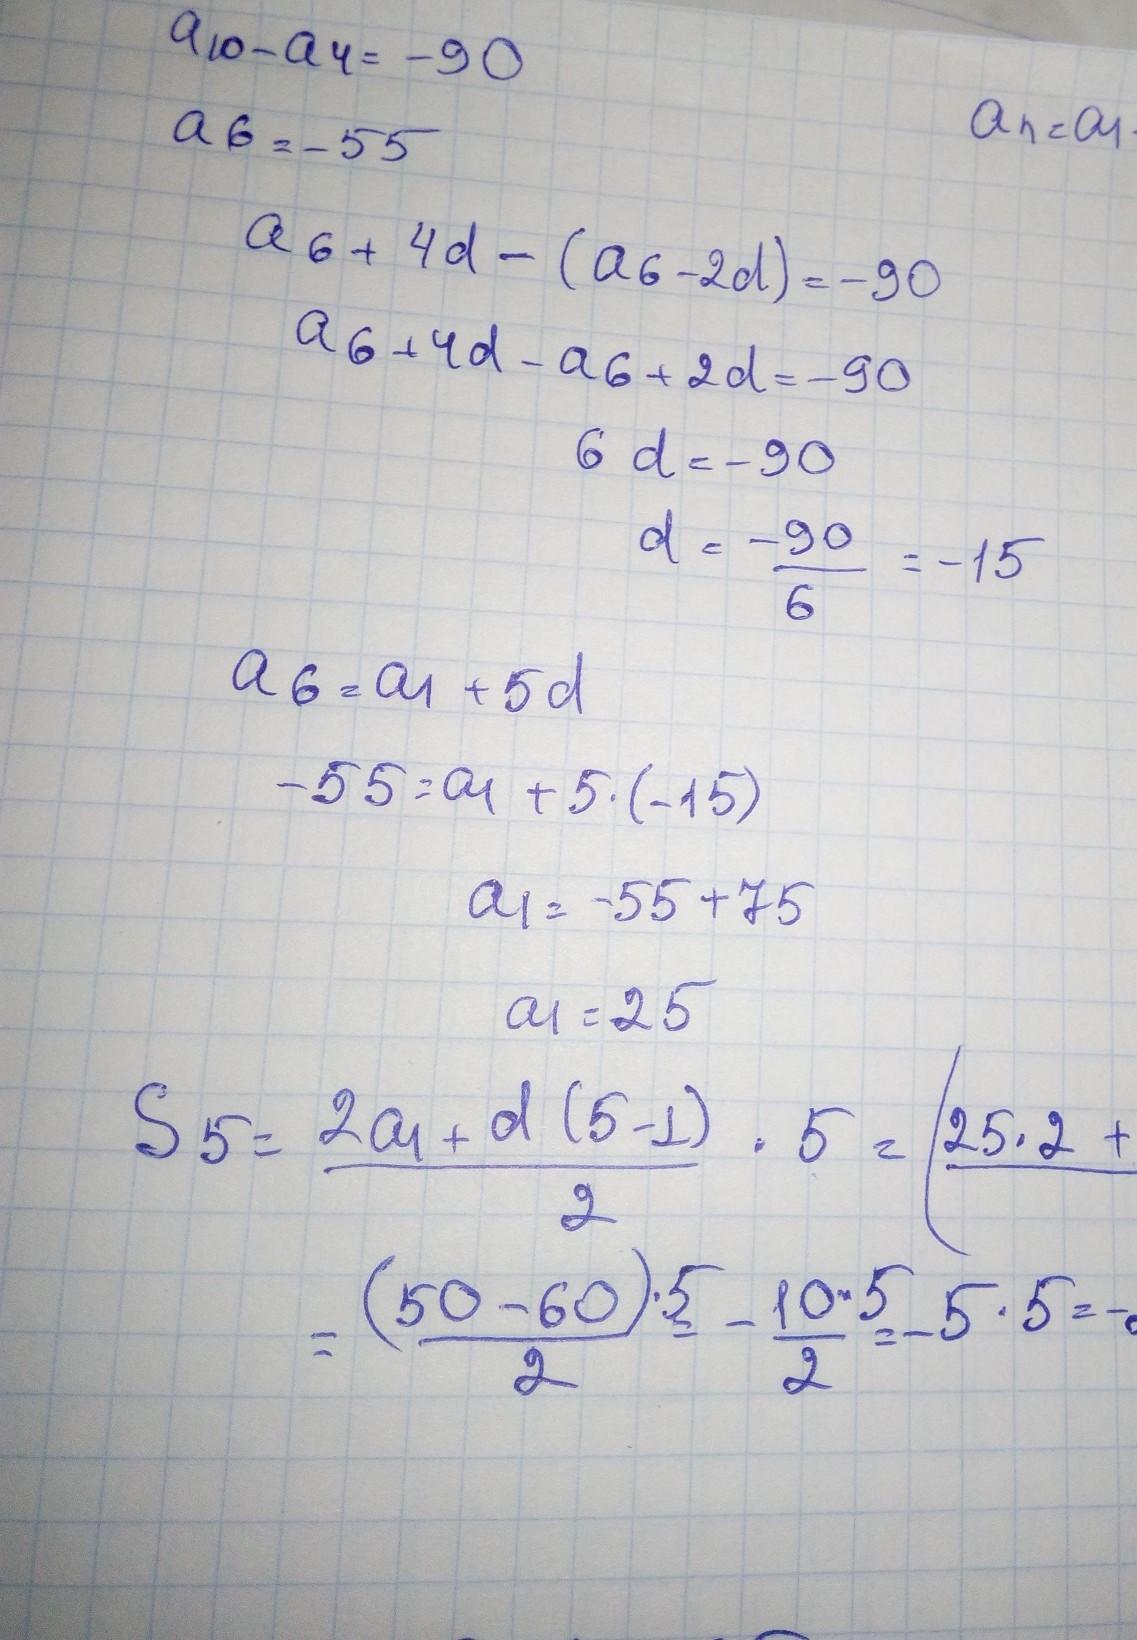 a10-a4=-90
a6=-55
an=a1
a6+4d-(a6-2d)=-90
a6+4d-a6+2d=-90
6d=-90
d=-90/6=-15
a6=a1+5d
-55=a1+5·(-15)
a1=-55+75
a1=25
S5=2a1+d(5-1)/2·5=(25·2+
=(50-60)·5/2=-10·5/2=-5·5=-